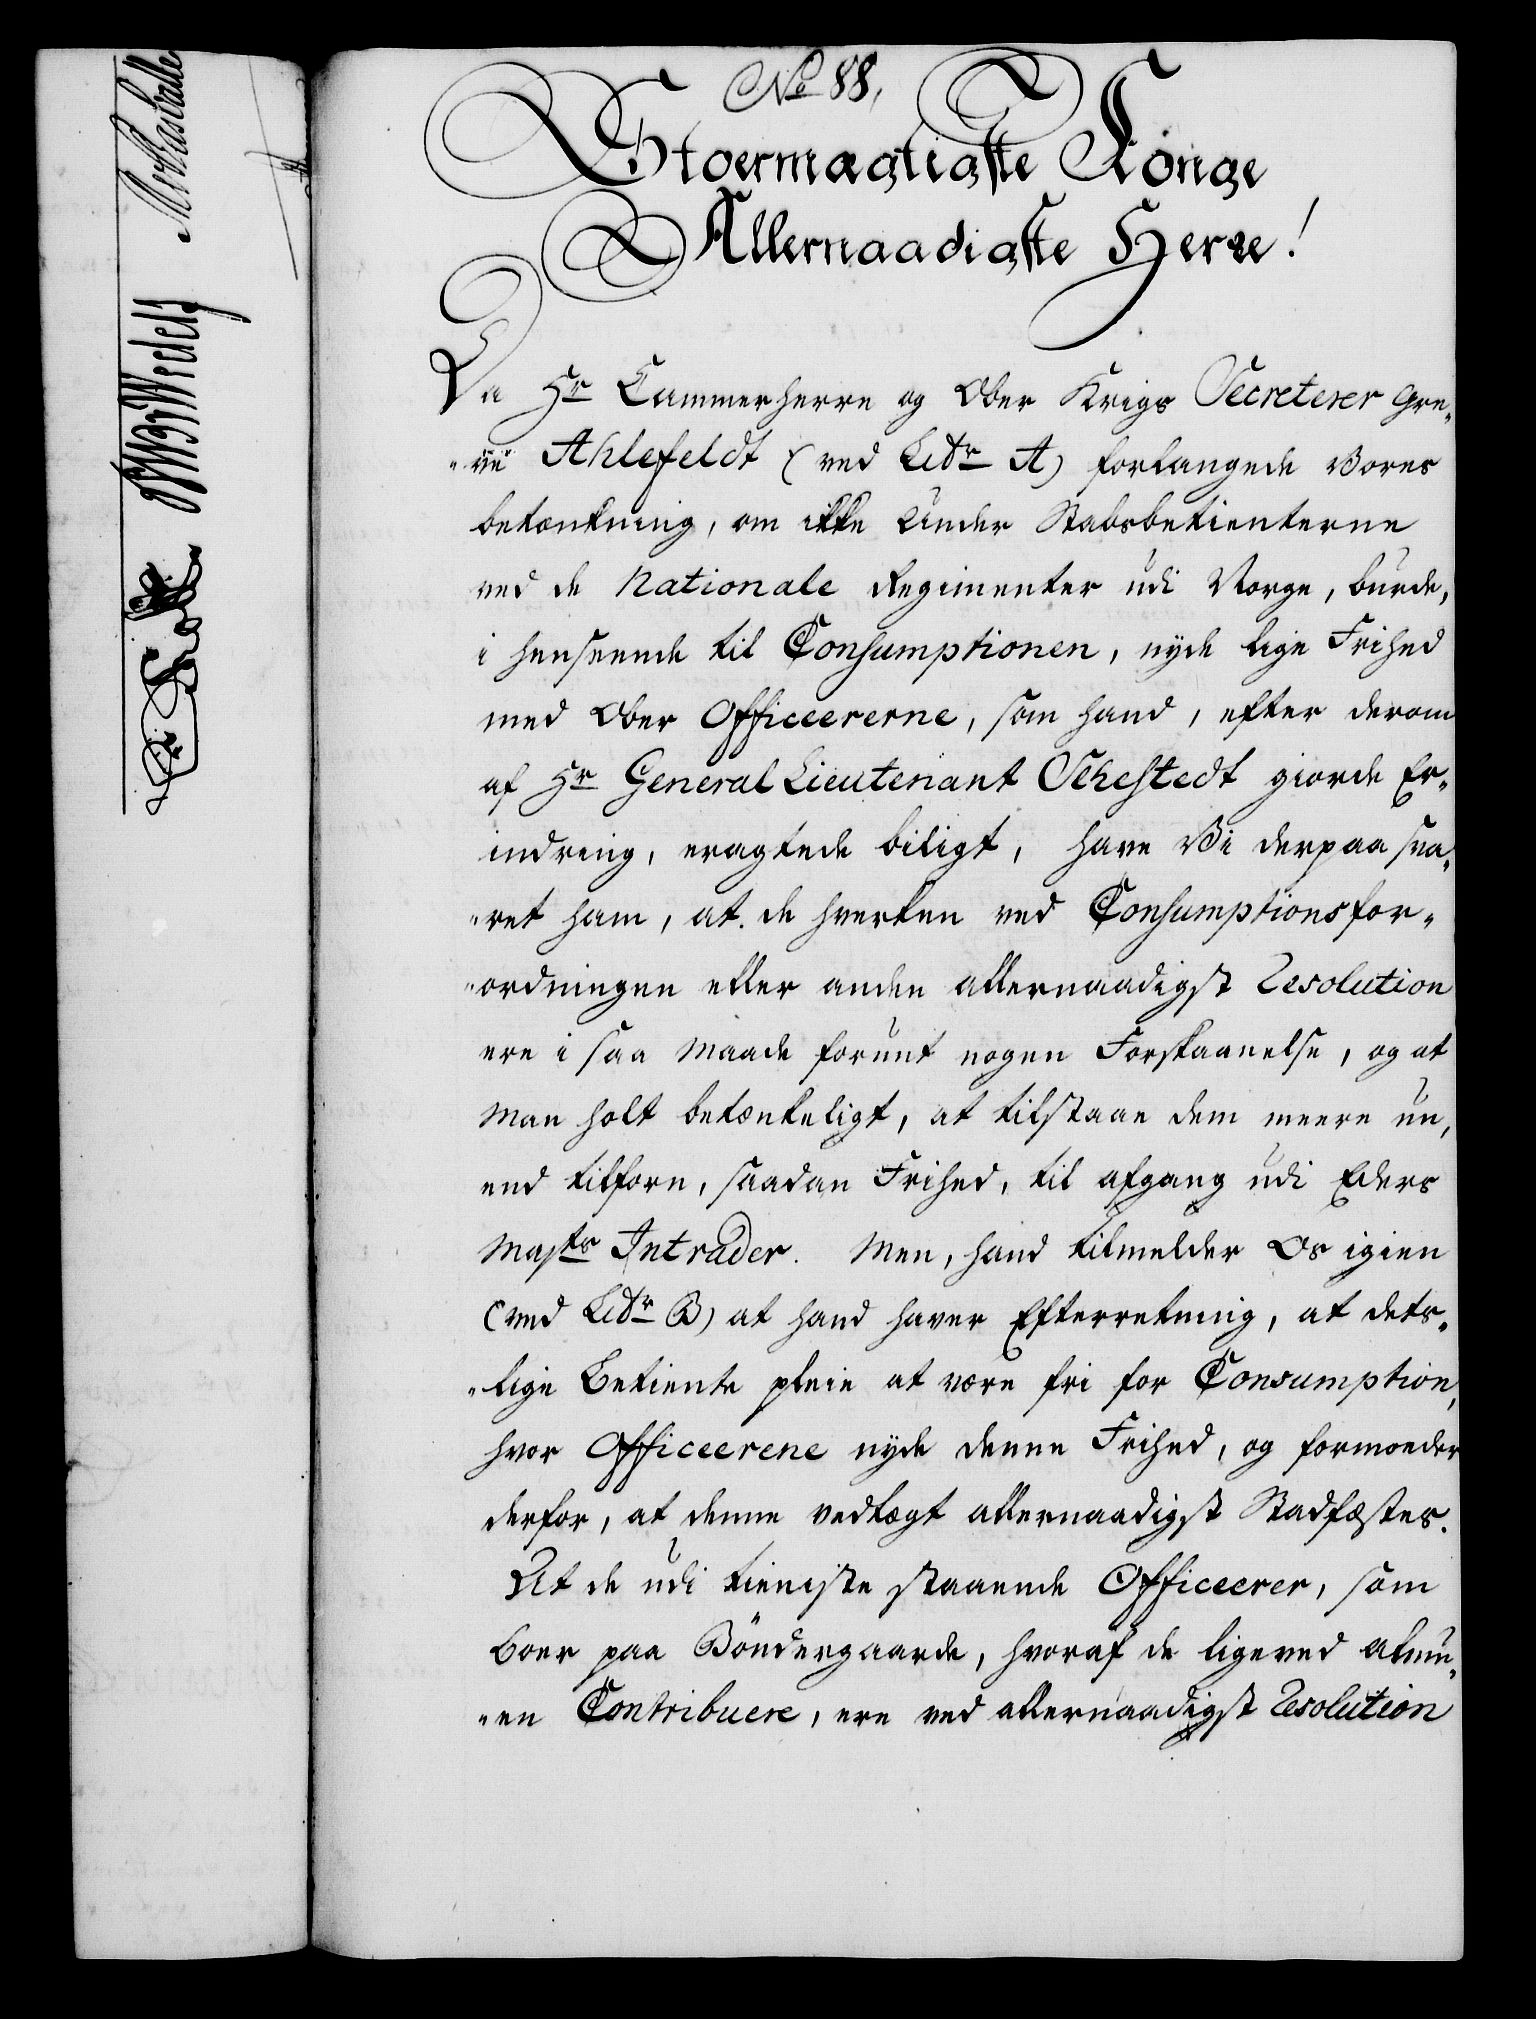 No 88,
Stoermægtigste Konge
Allernaadigste Herre!
Da Hr Cammerherre og Ober Krigs Secreterer Gre„
„ve Ahlefeldt (ved Litr A) forlangede Vores
betænkning, om ikke Under Stabsbetienterne
ved de Nationale Regimenter udi Norge, burde,
i henseende til Consumptionen, nyde lige Frihed
med Ober Officeererne, som hand, efter derom
af Hr General Lieutenant Schestedt giorde Er„
indring, eragtede biligt, have Vi derpaa sva„
„ret ham, at de hverken ved Consumptionsfor„
„ordningen eller anden allernaadigst Resolution
ere i saa Maade forunt nogen Forskaanelse, og at
Man holt betænkeligt, at tilstaae dem meere nu,
end tilforn, saadan Frihed, til afgang udi Eders
Mayts Intrader. Men, hand tilmelder Os igien
(ved Litr B) at hand haver Efterretning, at dets„
„lige Betiente pleie at være fri for Consumption,
hvor Officeerene nyde denne Frihed, og formoeder
derfor, at denne vedtægt allernaadigst Stadfæstes.
At de udi tieniste staaende Officeerer, som
boer paa Bøndergaarde, hvoraf de ligeved almu„
„en Contribuere, ere ved allernaadigst Resolution